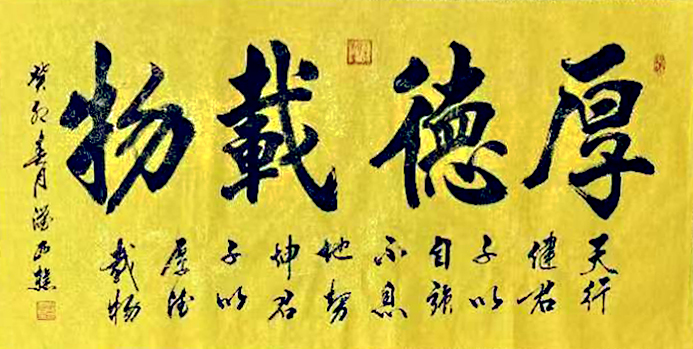 厚德載物
天行
健君
子以
自強
不息
地勢
坤君
子以
厚德
載物
癸卯春月